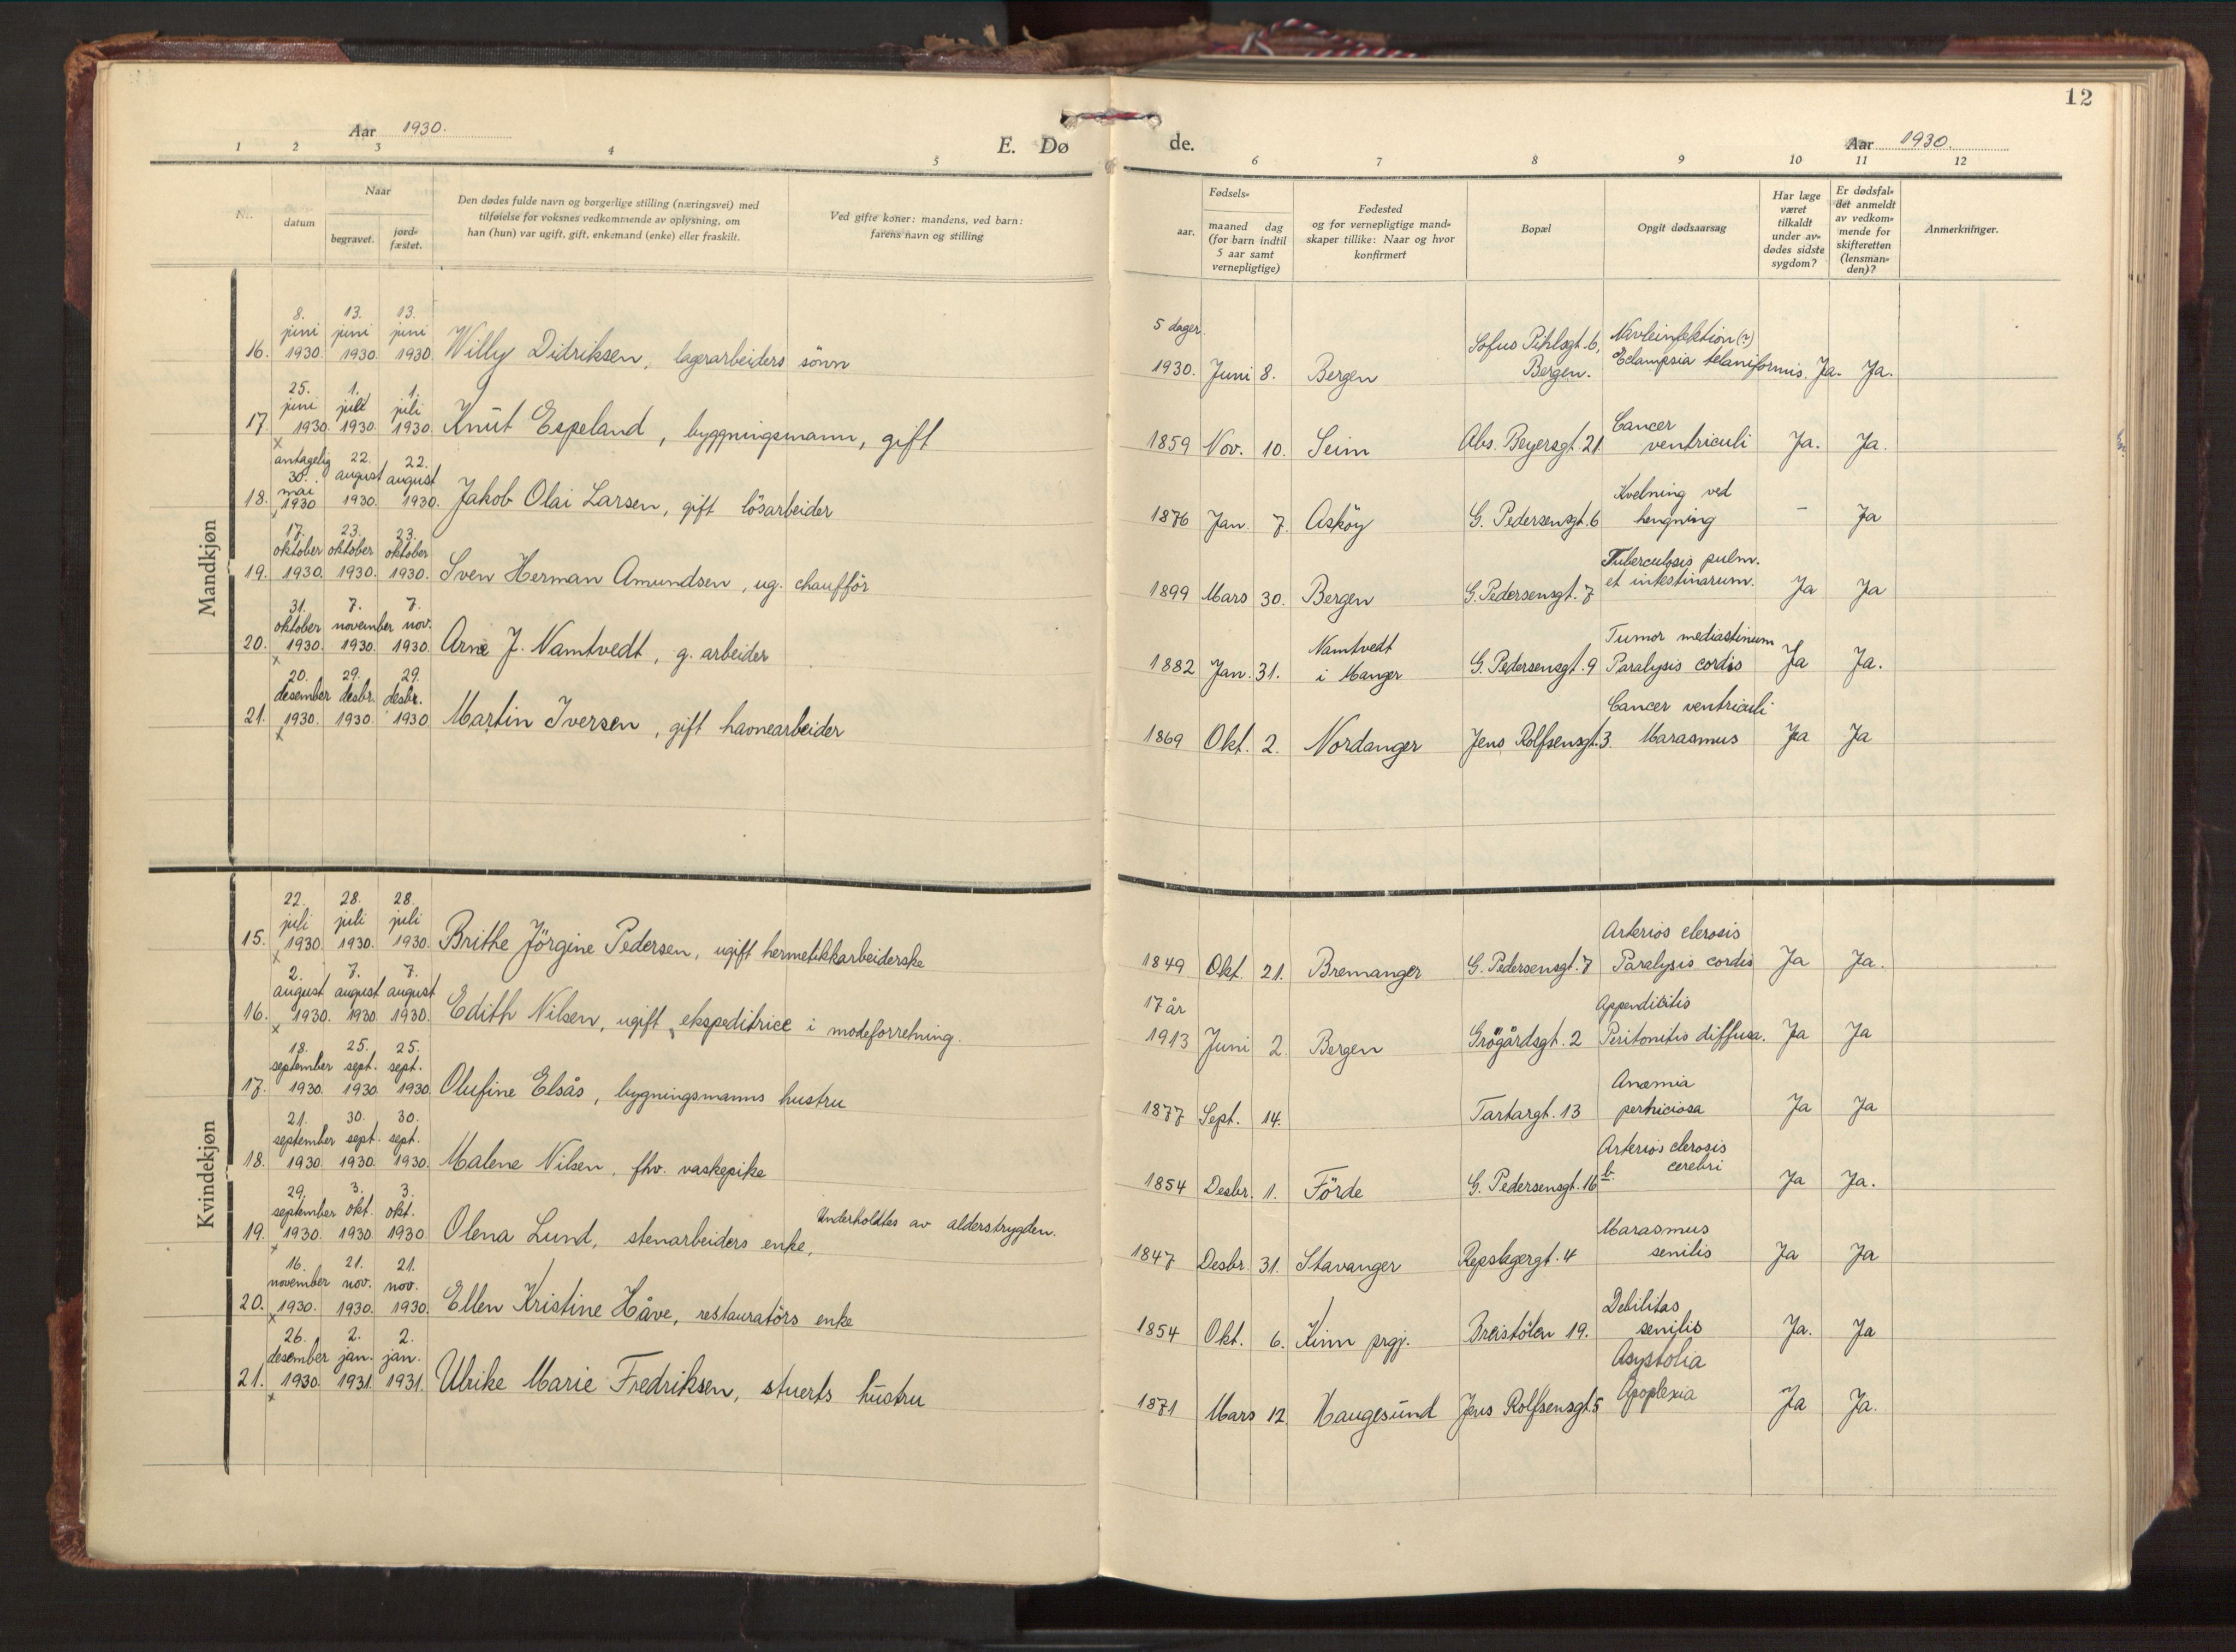 12
Aar 1930.
E. Dø de.
Aar 1930.
1 2 3 4 5 6 7 8 9 10 11 12
Nr.
datum
Naar
begravet.
jord-
fæstet.
Den dødes fulde navn og borgerlige stilling (næringsvei) med
tilføielse for voksnes vedkommende av oplysning, om
han (hun) var ugift, gift, enkemand (enke) eller fraskilt.
Ved gifte koner: mandens, ved barn:
farens navn og stilling
Fødsels-
aar.
maaned dag
(for barn indtil
5 aar samt
vernepligtige)
Fødested
og for vernepligtige mand-
skaper tillike: Naar og hvor
konfirmert
Bopæl
Opgit dødsaarsag
Har læge
været
tilkaldt
under av-
dødes sidste
sygdom?
Er dødsfal-
det anmeldt
av vedkom-
mende for
skifteretten
(lensman-
den)?
Anmerkninger.
Mandkjøn
8. 13. 13.
juni juni juni
16. 1930. 1930. 1930. Willy Didriksen, lagerarbeiders sönn
5 dager.
1930. Juni 8. Bergen
Sofus Pihlsgt. 6,
Bergen.
Navleinfektion (?)
Eclampsia tetaniformis. Ja. Ja.
25. 1. 1.
juni juli juli
17. 1930. 1930. 1930. Knut Espeland, byggningsmann, gift
x
1859 Nov. 10. Seim Abs. Beyersgt. 21
Cancer
ventriculi Ja. Ja.
antagelig 22. 22.
30. august august
mai
18. 1930 1930. 1930. Jakob Olai Larsen, gift lösarbeider
1876 Jan. 7. Asköy G. Pedersensgt. 6
Kvelning ved
hengning - Ja
17. 23. 23.
oktober oktober oktober
19. 1930. 1930. 1930. Sven Herman Amundsen, ug. chaufför
1899 Mars 30. Bergen G. Pedersensgt. 7
Tuberculosis pulm.
et intestinarum. Ja Ja
31. 7. 7.
oktober november nov.
20. 1930. 1930. 1930. Arne J. Namtvedt, g. arbeider
x
1882 Jan. 31.
Namtvedt
i Manger
G. Pedersensgt. 9
Tumor mediastinum
Paralysis cordis Ja Ja.
20. 29. 29.
desember desbr. desbr.
21. 1930. 1930. 1930 Martin Iversen, gift havnearbeider
x
1869 Okt. 2. Nordanger Jens Rolfsensgt. 3.
Cancer ventriculi
Marasmus Ja Ja
Kvindekjøn
22. 28. 28.
juli juli juli
15. 1930. 1930. 1930. Brithe Jörgine Pedersen, ugift hermetikkarbeiderske
x
1849 Okt. 21. Bremanger G. Pedersensgt. 7
Arterios clerosis
Paralysis cordis Ja Ja.
2. 7. 7.
august august august
16. 1930. 1930 1930. Edith Nilsen, ugift, ekspeditrice i modeforretning.
x
17 år
1913 Juni 2. Bergen Grögårdsgt. 2
Appendicitis
Peritonitis diffusa. Ja Ja
18. 25. 25.
september sept. sept.
17. 1930. 1930. 1930. Olufine Elsås, bygningsmanns hustru
1877 Sept. 14. Tartargt. 13
Anæmia
perniciosa Ja Ja
21. 30. 30.
september sept. sept.
18. 1930. 1930. 1930. Malene Nilsen, fhv. vaskepike
1854 Desbr. 1. Förde G. Pedersensgt. 16 b.
Arterios clerosis
cerebri Ja Ja.
29. 3. 3.
september okt. okt.
19. 1930. 1930 1930 Olena Lund, stenarbeiders enke,
Underholdtes av alderstrygden.
x
1847 Desbr. 31. Stavanger Repslagergt. 4
Marasmus
senilis Ja Ja
16. 21. 21.
november nov. nov.
20. 1930. 1930. 1930. Ellen Kristine Håve, restauratörs enke
x
1854 Okt. 6. Kinn prgj. Breistölen 19.
Debilitas
senilis Ja. Ja
26. 2. 2.
desember jan. jan.
21. 1930. 1931. 1931. Ulrike Marie Fredriksen, stuerts hustru
x
1871 Mars 12 Haugesund Jens Rolfsensgt. 5
Asystolia
Apoplexia Ja Ja.